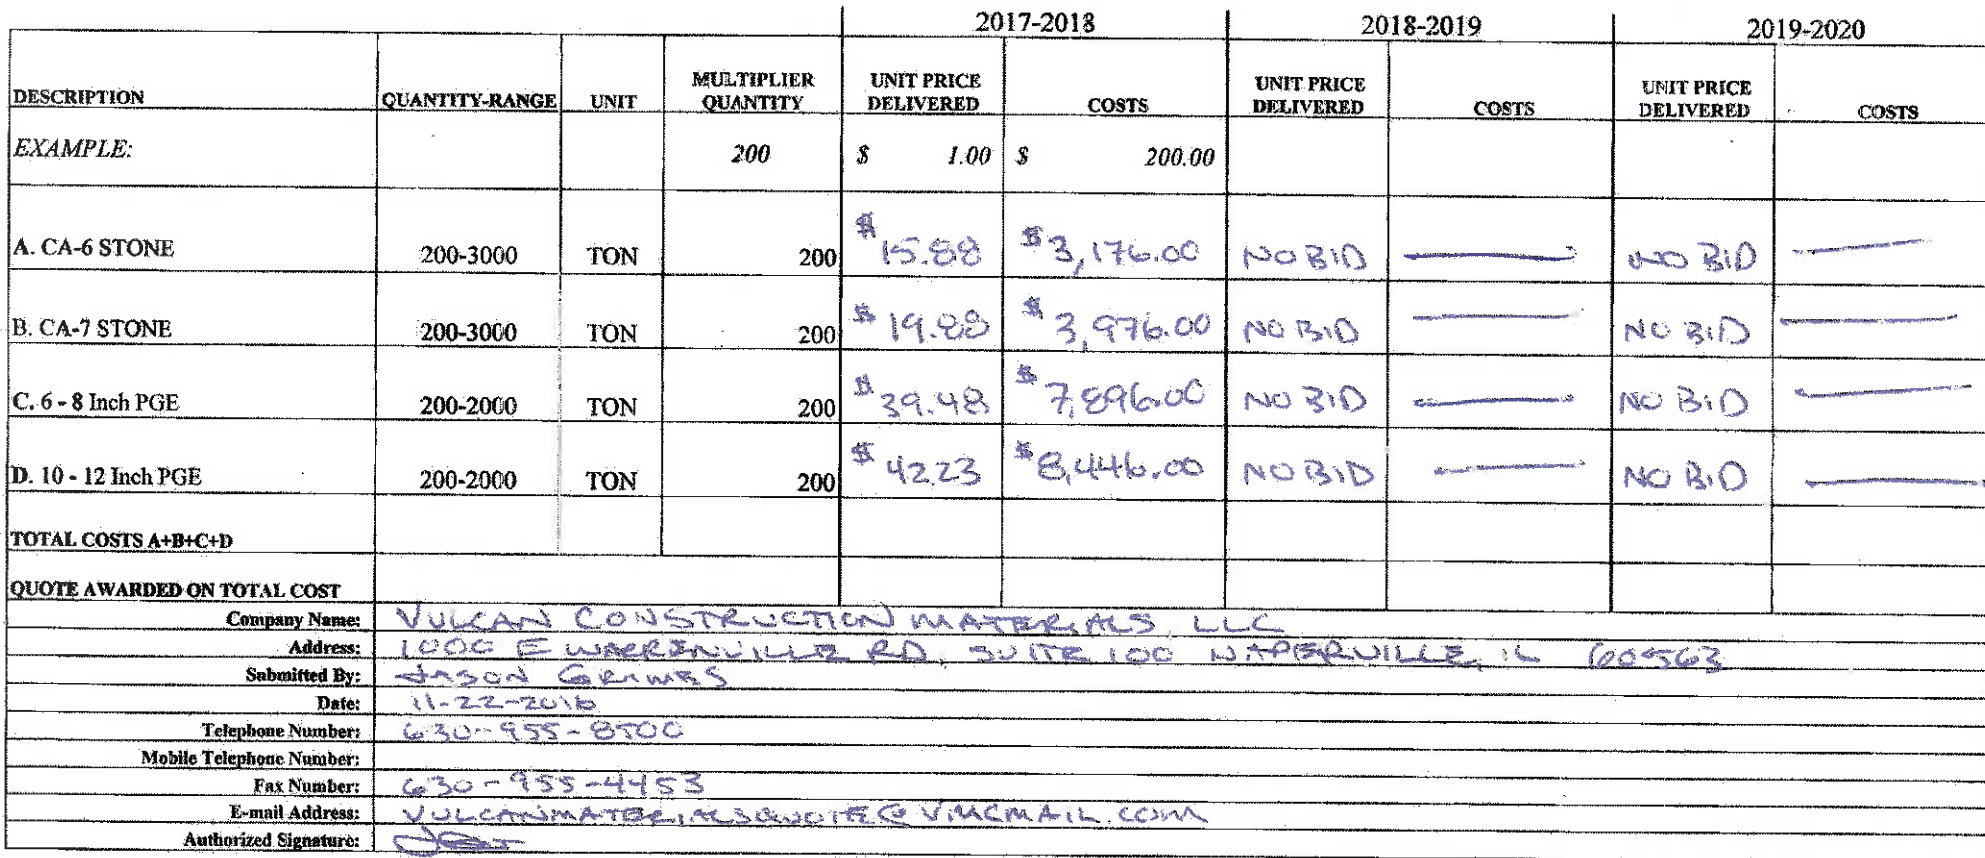 2017-2018 2018-2019 2019-2020
DESCRIPTION QUANTITY-RANGE UNIT MULTIPLIER QUANTITY UNIT PRICE DELIVERED COSTS UNIT PRICE DELIVERED COSTS UNIT PRICE DELIVERED COSTS
EXAMPLE: 200 $ 1.00 $ 200.00
A. CA-6 STONE 200-3000 TON 200 $15.88 $3,176.00 NO BID NO BID
B. CA-7 STONE 200-3000 TON 200 $19.88 $3,976.00 NO BID NO BID
C. 6 - 8 Inch PGE 200-2000 TON 200 $39.48 $7,896.00 NO BID NO BID
D. 10 - 12 Inch PGE 200-2000 TON 200 $42.23 $8,446.00 NO BID NO BID
TOTAL COSTS A+B+C+D
QUOTE AWARDED ON TOTAL COST
Company Name: VULCAN CONSTRUCTION MATERIALS, LLC
Address: 1000 E WARRENVILLE RD, SUITE 100 NAPERVILLE, IL 60563
Submitted By: JASON GRIMES
Date: 11-22-2016
Telephone Number: 630-955-8500
Mobile Telephone Number:
Fax Number: 630-955-4453
E-mail Address: VULCANMATERIALSQUOTE@VMCMAIL.COM
Authorized Signature: